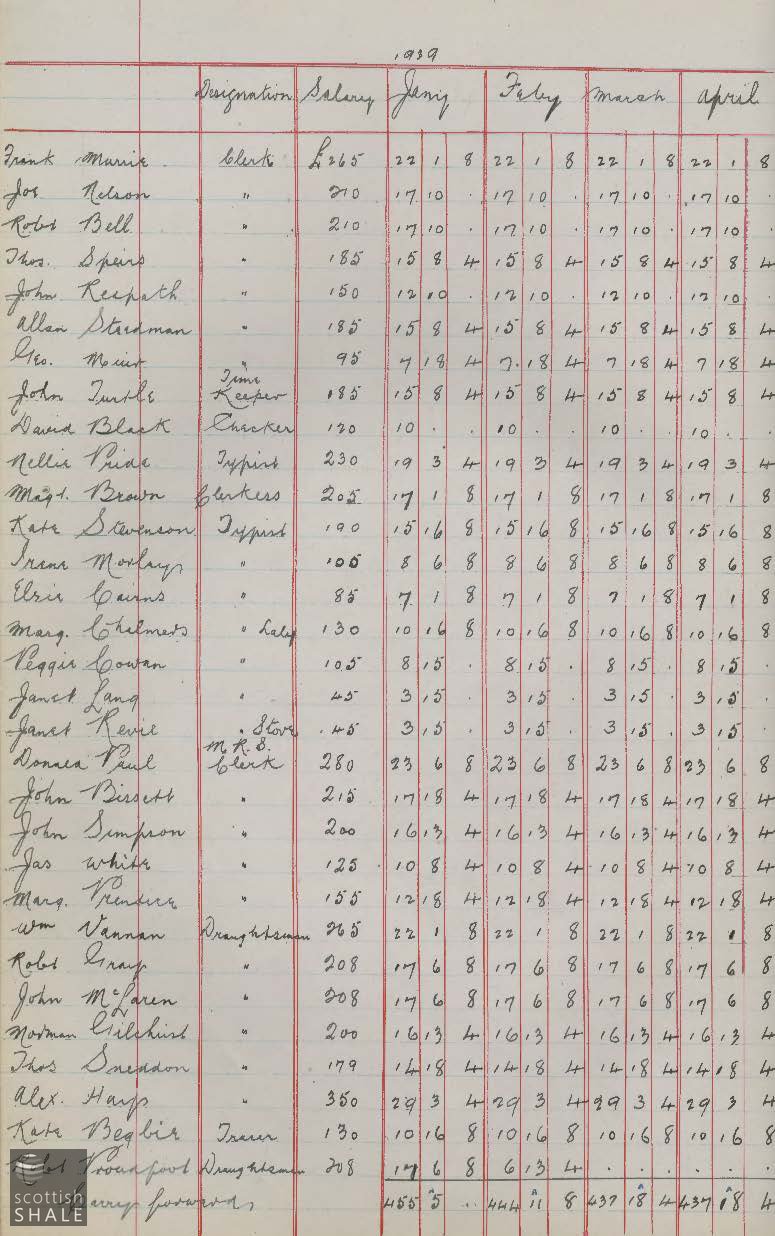 1939
Designation Salary Jany Feby March April
Frank Murrie Clerk £265 22 1 8 22 1 8 22 1 8 22 1 8
Joe Nelson " 210 17 10 . 17 10 . 17 10 . 17 10
Robt Bell " 210 17 10 . 17 10 . 17 10 . 17 10
Thos. Speirs " 185 15 8 4 15 8 4 15 8 4 15 8 4
John Respath " 150 12 10 . 12 10 . 12 10 . 12 10
Allan Steedman " 185 15 8 4 15 8 4 15 8 4 15 8 4
Geo. Muir " 95 7 18 4 7 18 4 7 18 4 7 18 4
John Turtle Time Keeper 185 15 8 4 15 8 4 15 8 4 15 8 4
David Black Checker 120 10 . . 10 . . 10 . . 10 . .
Nellie Pride Typist 230 19 3 4 19 3 4 19 3 4 19 3 4
Magt. Brown Clerkess 205 17 1 8 17 1 8 17 1 8 17 1 8
Kate Stevenson Typist 190 15 16 8 15 16 8 15 16 8 15 16 8
Irene " 105 8 6 8 8 6 8 8 6 8 8 6 8
Elsie Cairns " 85 7 1 8 7 1 8 7 1 8 7 1 8
Marg. Chalmers " 130 10 16 8 10 16 8 10 16 8 10 16 8
Peggie Cowan " 105 8 15 . 8 15 . 8 15 . 8 15
Janet Lang " 45 3 15 . 3 15 . 3 15 . 3 15
Janet Revie " Store 45 3 15 . 3 15 . 3 15 . 3 15
Donald Paul M.R.S. Clerk 280 23 6 8 23 6 8 23 6 8 23 6 8
John Bissett " 215 17 18 4 17 18 4 17 18 4 17 18 4
John Simpson " 200 16 13 4 16 13 4 16 13 4 16 13 4
Jas White " 125 10 8 4 10 8 4 10 8 4 10 8 4
Marg. Prentice " 155 12 18 4 12 18 4 12 18 4 12 18 4
Wm Vannan Draughtsman 265 22 1 8 22 1 8 22 1 8 22 1 8
Robt Gray " 208 17 6 8 17 6 8 17 6 8 17 6 8
John McLaren " 208 17 6 8 17 6 8 17 6 8 17 6 8
Norman Gilchrist " 200 16 13 4 16 13 4 16 13 4 16 13 4
Thos Sneddon " 179 14 18 4 14 18 4 14 18 4 14 18 4
Alex. Hays " 350 29 3 4 29 3 4 29 3 4 29 3 4
Kate Begbie Tracer 130 10 16 8 10 16 8 10 16 8 10 16 8
Robt Proudfoot Draughtsman 208 17 6 8 6 13 4 . . . . . .
Carry forward, 455 5 .. 444 11 8 437 18 4 437 18 4
scottish
SHALE